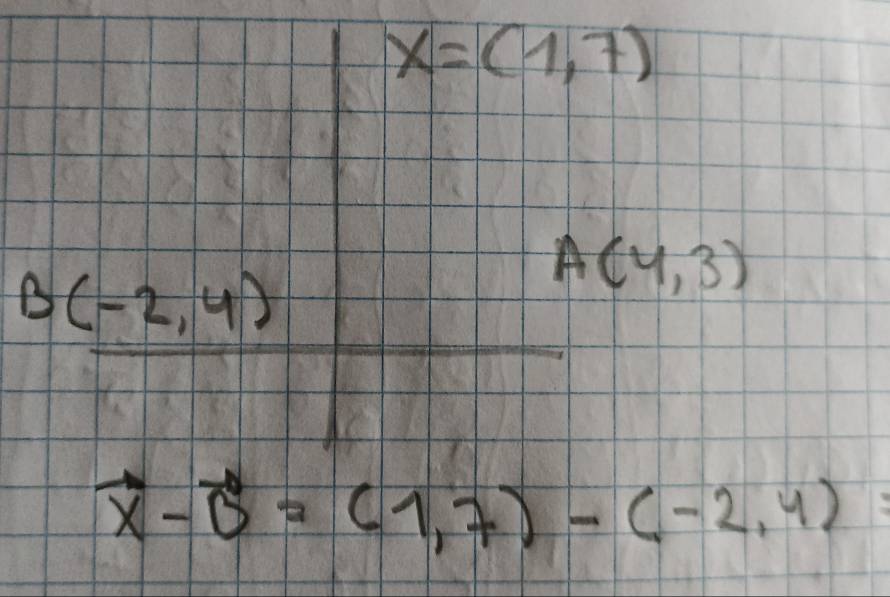 X=(1,7)
A(4,3)
B(-2,4)
X⃗ - B⃗ = (1,7) - (-2,4) =